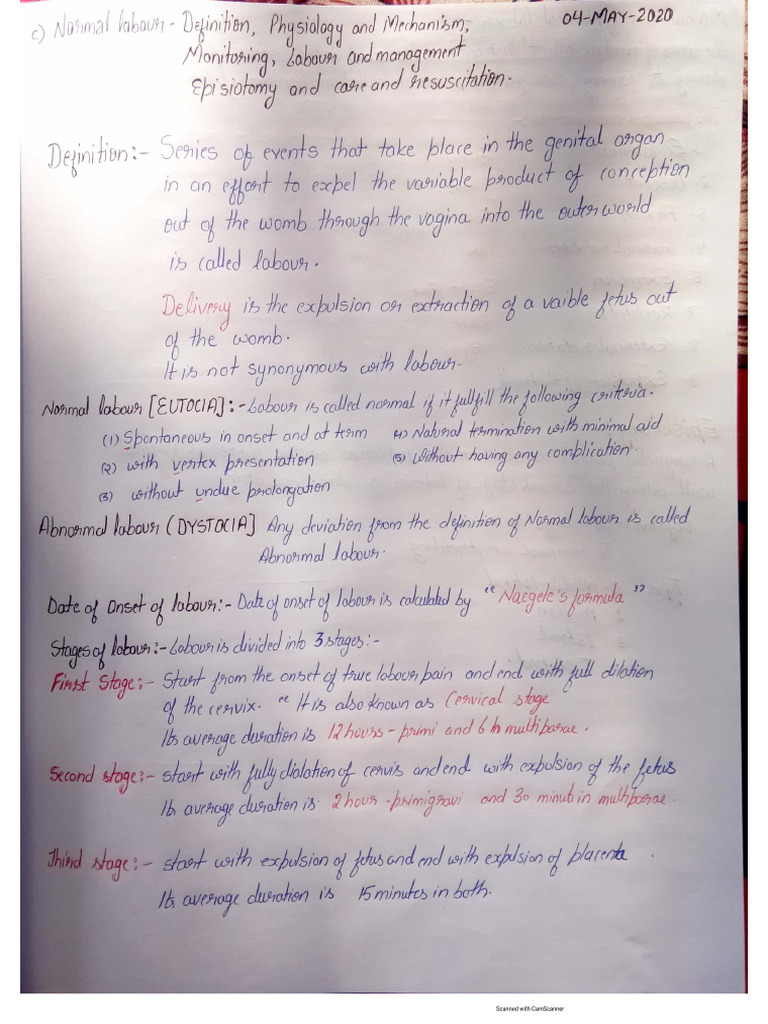 c) Normal labour - Definition, Physiology and Mechanism,
04-MAY-2020
Monitoring, Labour and management
Episiotomy and care and resuscitation.
Definition:- Series of events that take place in the genital organ
in an effort to expel the variable product of conception
out of the womb through the vagina into the outer world
is called labour.
Delivery is the expulsion or extraction of a vaible fetus out
of the womb.
It is not synonymous with labour.
Normal labour [EUTOCIA]:- Labour is called normal if it fullfill the following criteria.
(1) Spontaneous in onset and at term (4) Natural termination with minimal aid
(2) with vertex presentation (5) without having any complication.
(3) without undue prolongation
Abnormal labour (DYSTOCIA] Any deviation from the definition of Normal labour is called
Abnormal labour.
Date of Onset of labour:- Date of onset of labour is calculated by "Naegele's formula"
Stages of labour:- Labour is divided into 3 stages:-
First Stage:- Start from the onset of true labour pain and end with full dilation
of the cervix. " It is also known as Cervical stage
Its average duration is 12 hours - primi and 6 h multiparae.
Second stage:- start with fully dialation of cervis and end with expulsion of the fetus
Its average duration is 2 hour - primigravi and 30 minut in multiparae.
Third stage:- start with expulsion of fetus and end with explsion of placenta.
Its average duration is 15 minutes in both.
Scanned with CamScanner